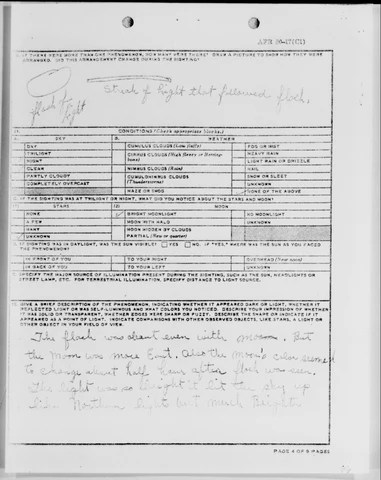 AFR 80-17(C1)
IF THERE WERE MORE THAN ONE PHENOMENON, HOW MANY WERE THERE? DRAW A PICTURE TO SHOW HOW THEY WERE
ARRANGED. DID THIS ARRANGEMENT CHANGE DURING THE SIGHTING?
Streak of light that followed flash.
flash of
light
CONDITIONS (Check appropriate blocks.)
SKY
WEATHER
DAY
CUMULUS CLOUDS (Low fluffy)
FOG OR MIST
TWILIGHT
CIRRUS CLOUDS (High fleecy or Herring-bone)
HEAVY RAIN
NIGHT
LIGHT RAIN OR DRIZZLE
CLEAR
NIMBUS CLOUDS (Rain)
HAIL
PARTLY CLOUDY
CUMULONIMBUS CLOUDS (Thunderstorms)
SNOW OR SLEET
COMPLETELY OVERCAST
UNKNOWN
HAZE OR SMOG
NONE OF THE ABOVE
IF THE SIGHTING WAS AT TWILIGHT OR NIGHT, WHAT DID YOU NOTICE ABOUT THE STARS AND MOON?
STARS
MOON
NONE
BRIGHT MOONLIGHT
NO MOONLIGHT
A FEW
MOON WITH HALO
UNKNOWN
MANY
MOON HIDDEN BY CLOUDS
UNKNOWN
PARTIAL (New or quarter)
IF SIGHTING WAS IN DAYLIGHT, WAS THE SUN VISIBLE? YES NO. IF "YES," WHERE WAS THE SUN AS YOU FACED
THE PHENOMENON?
IN FRONT OF YOU
TO YOUR RIGHT
OVERHEAD (Near noon)
IN BACK OF YOU
TO YOUR LEFT
UNKNOWN
SPECIFY THE MAJOR SOURCE OF ILLUMINATION PRESENT DURING THE SIGHTING, SUCH AS THE SUN, HEADLIGHTS OR
STREET LAMP, ETC. FOR TERRESTRIAL ILLUMINATION, SPECIFY DISTANCE TO LIGHT SOURCE.
GIVE A BRIEF DESCRIPTION OF THE PHENOMENON, INDICATING WHETHER IT APPEARED DARK OR LIGHT, WHETHER IT
REFLECTED LIGHT OR WAS SELF-LUMINOUS AND WHAT COLORS YOU NOTICED. DESCRIBE YOUR IMPRESSION OF WHETHER
IT WAS SOLID OR TRANSPARENT, WHETHER EDGES WERE SHARP OR FUZZY. DESCRIBE THE SHAPE OR INDICATE IF IT
APPEARED AS A POINT OF LIGHT. INDICATE COMPARISONS WITH OTHER OBSERVED OBJECTS, LIKE STARS, A LIGHT OR
OTHER OBJECT IN YOUR FIELD OF VIEW.
The flash was even with moon. But
the Moon was more East. Also the Moon's color seemed
to change about half hour after flash was seen.
The light light sky up
like Northern light but much Brighter
PAGE 4 OF 9 PAGES